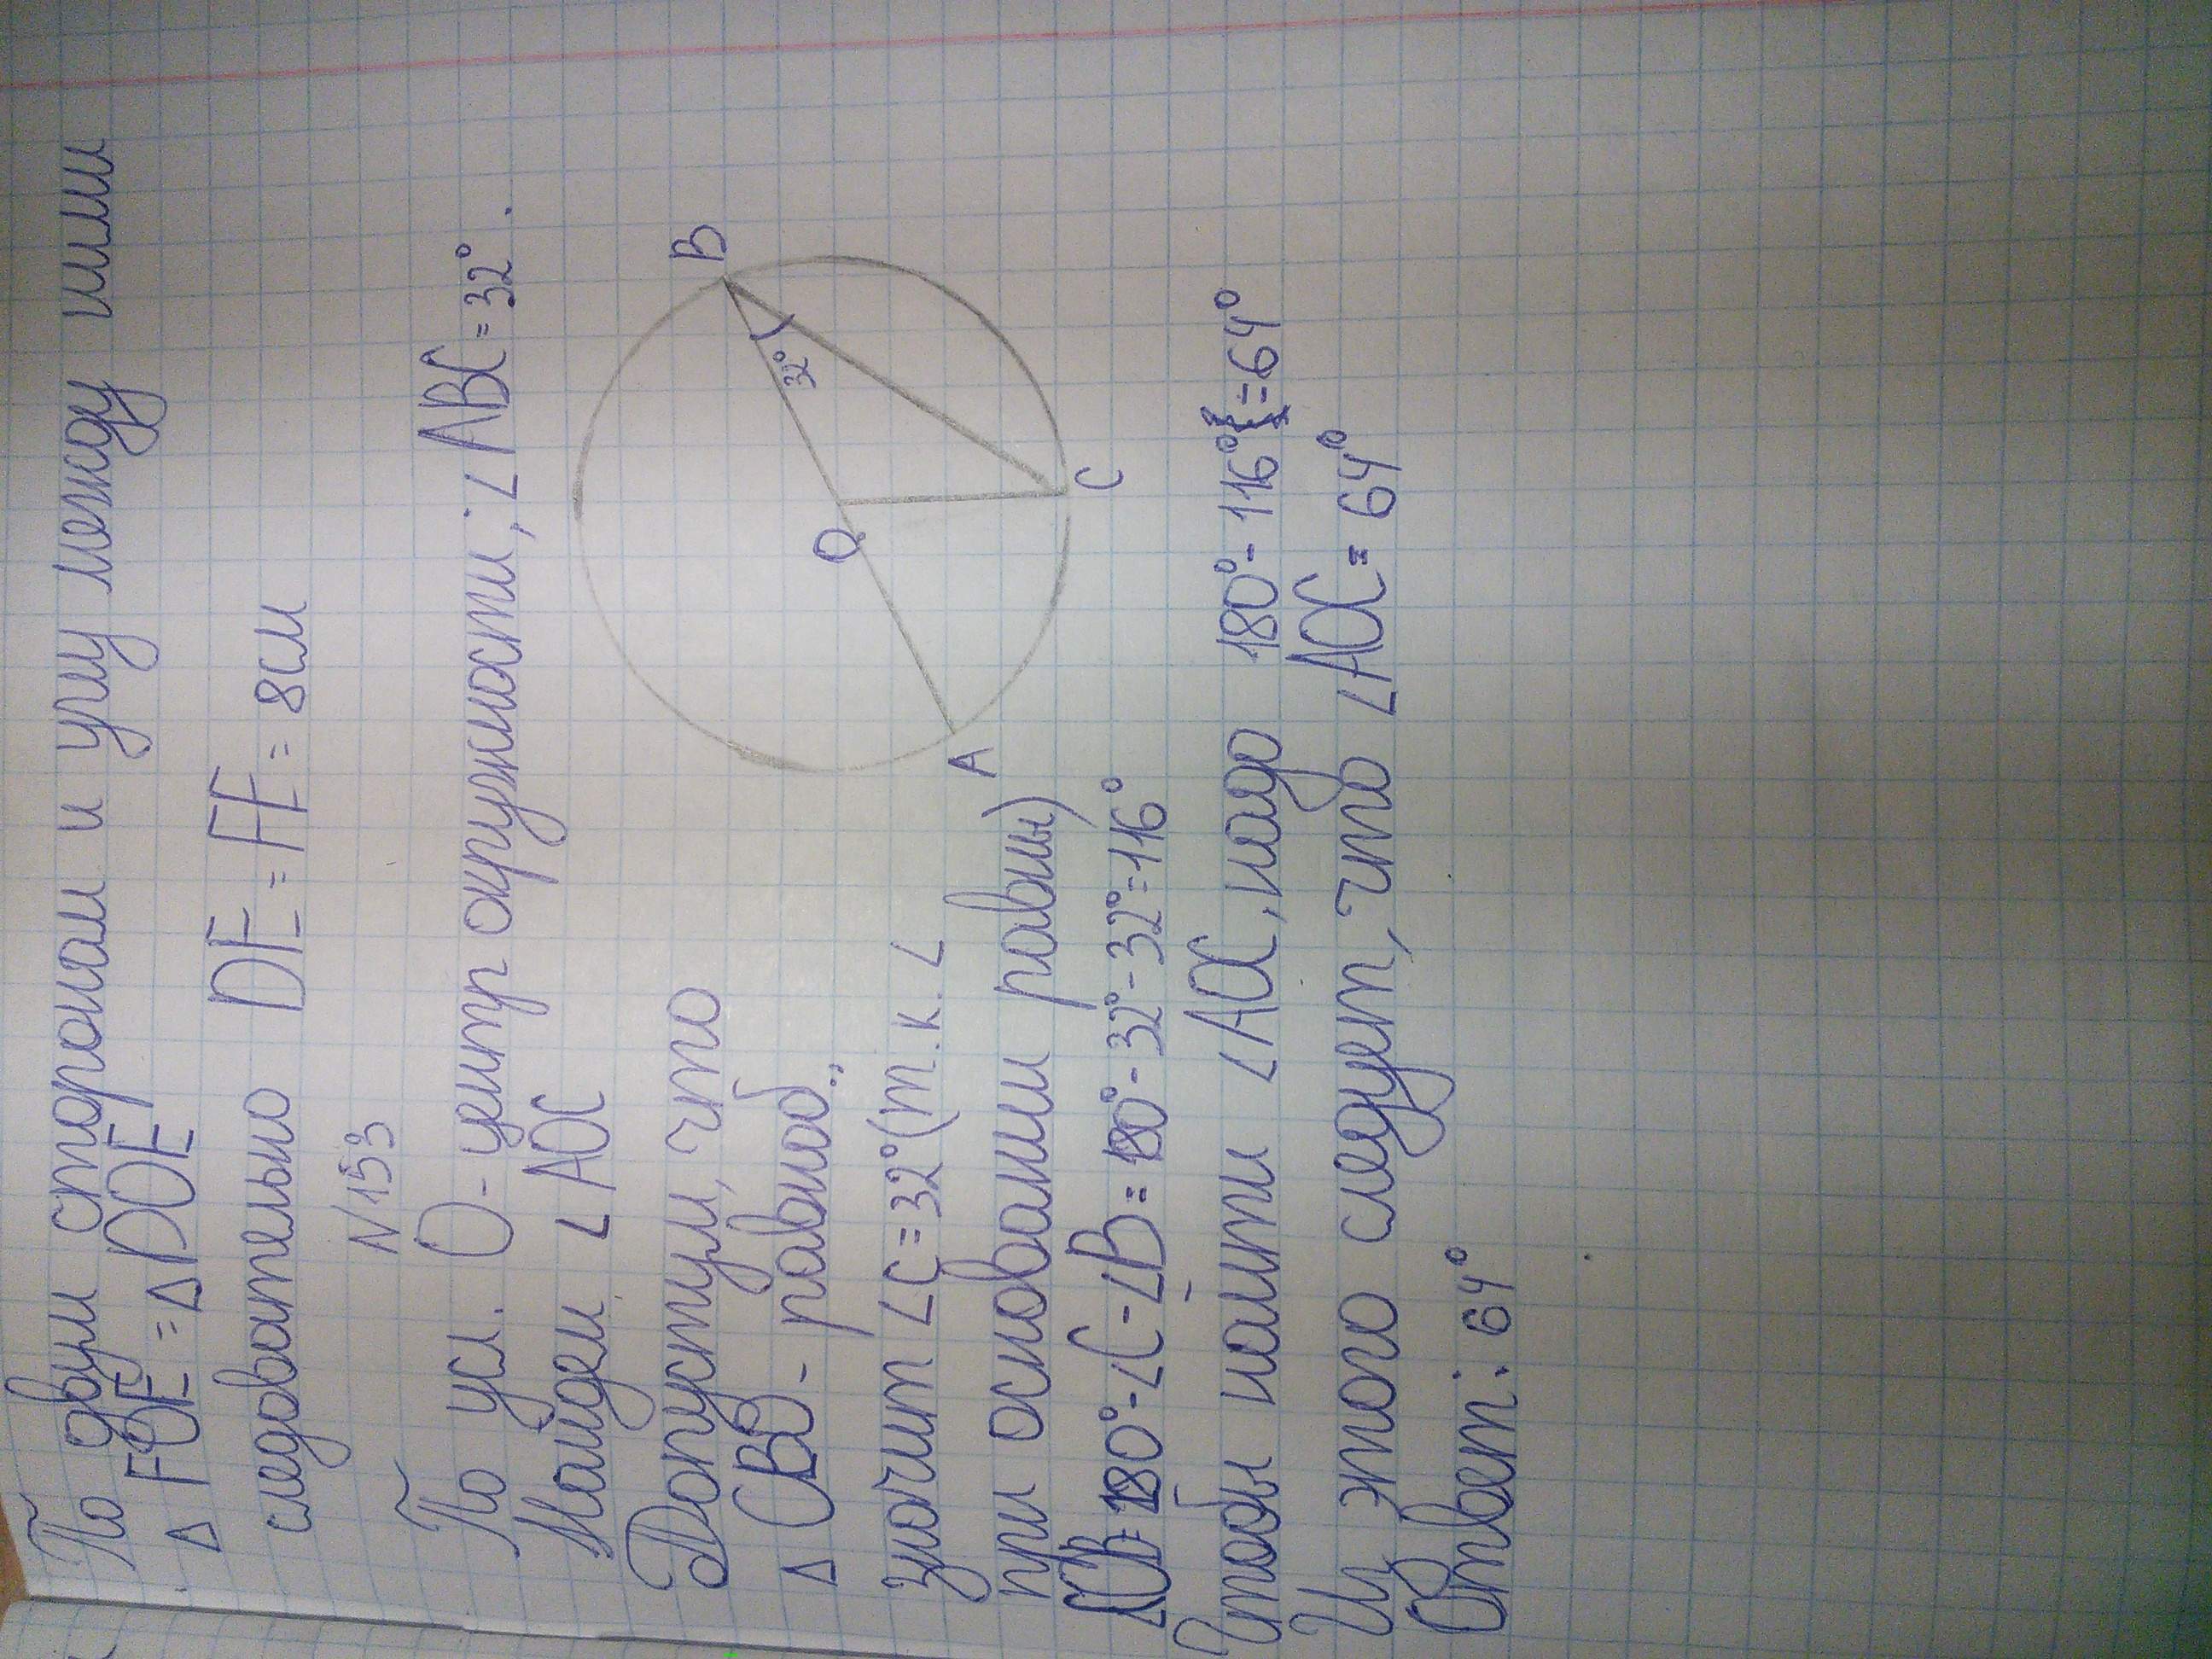 По двум сторонам и углу между ними
Δ FOE = Δ DOE
следовательно DE = FE = 8см
N 153
По усл. О - центр окружности; ∠ABC = 32°.
Найдем ∠ AOC
Допустим, что
Δ CBO - равноб.,
значит ∠C = 32° (т. к. ∠
при основании равны)
∠COB = 180° - ∠C - ∠B = 180° - 32° - 32° = 116°
Чтобы найти ∠AOC, надо 180° - 116° = 64°
Из этого следует, что ∠AOC = 64°
Ответ: 64°
B
32°
O
C
A